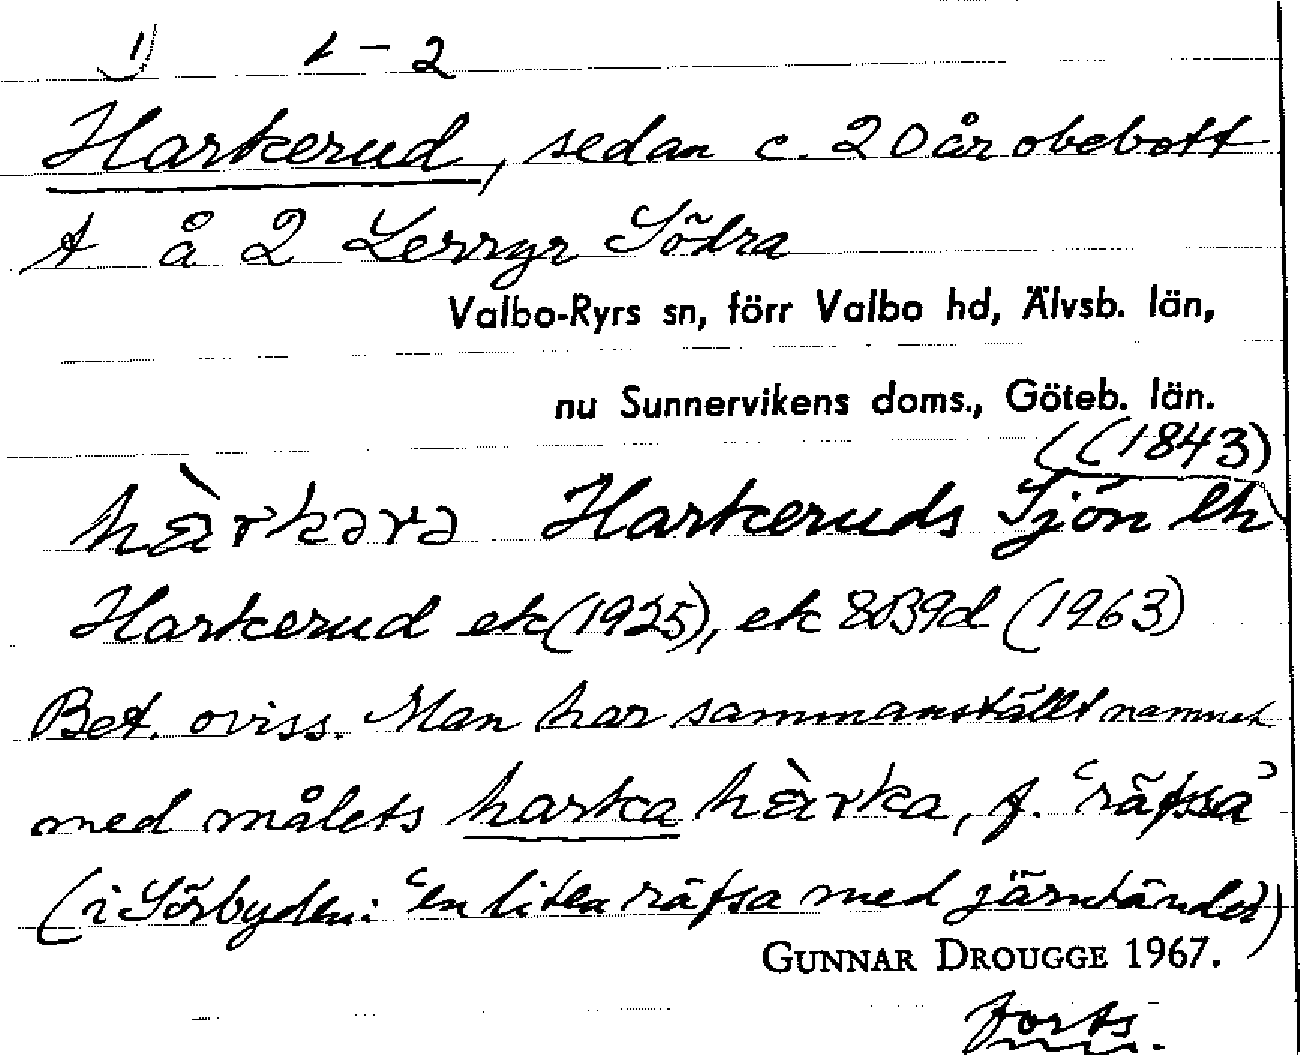 1) 1-2
Harkerud, sedan c. 20 år obebott
t å 2 Lerryr Södra
Valbo-Ryrs sn, förr Valbo hd, Älvsb. län,
nu Sunnervikens doms., Göteb. län.
((1843)
hàrkərə Harkeruds Sjön lh
Harkerud ek (1925), ek 8B9d (1963)
Bet. oviss. Man har sammanställt namnet
med målets harka hàrka, f. ‘räfsa’
(i Sörbyden: ‘en liten räfsa med järntänder)
GUNNAR DROUGGE 1967.
forts.